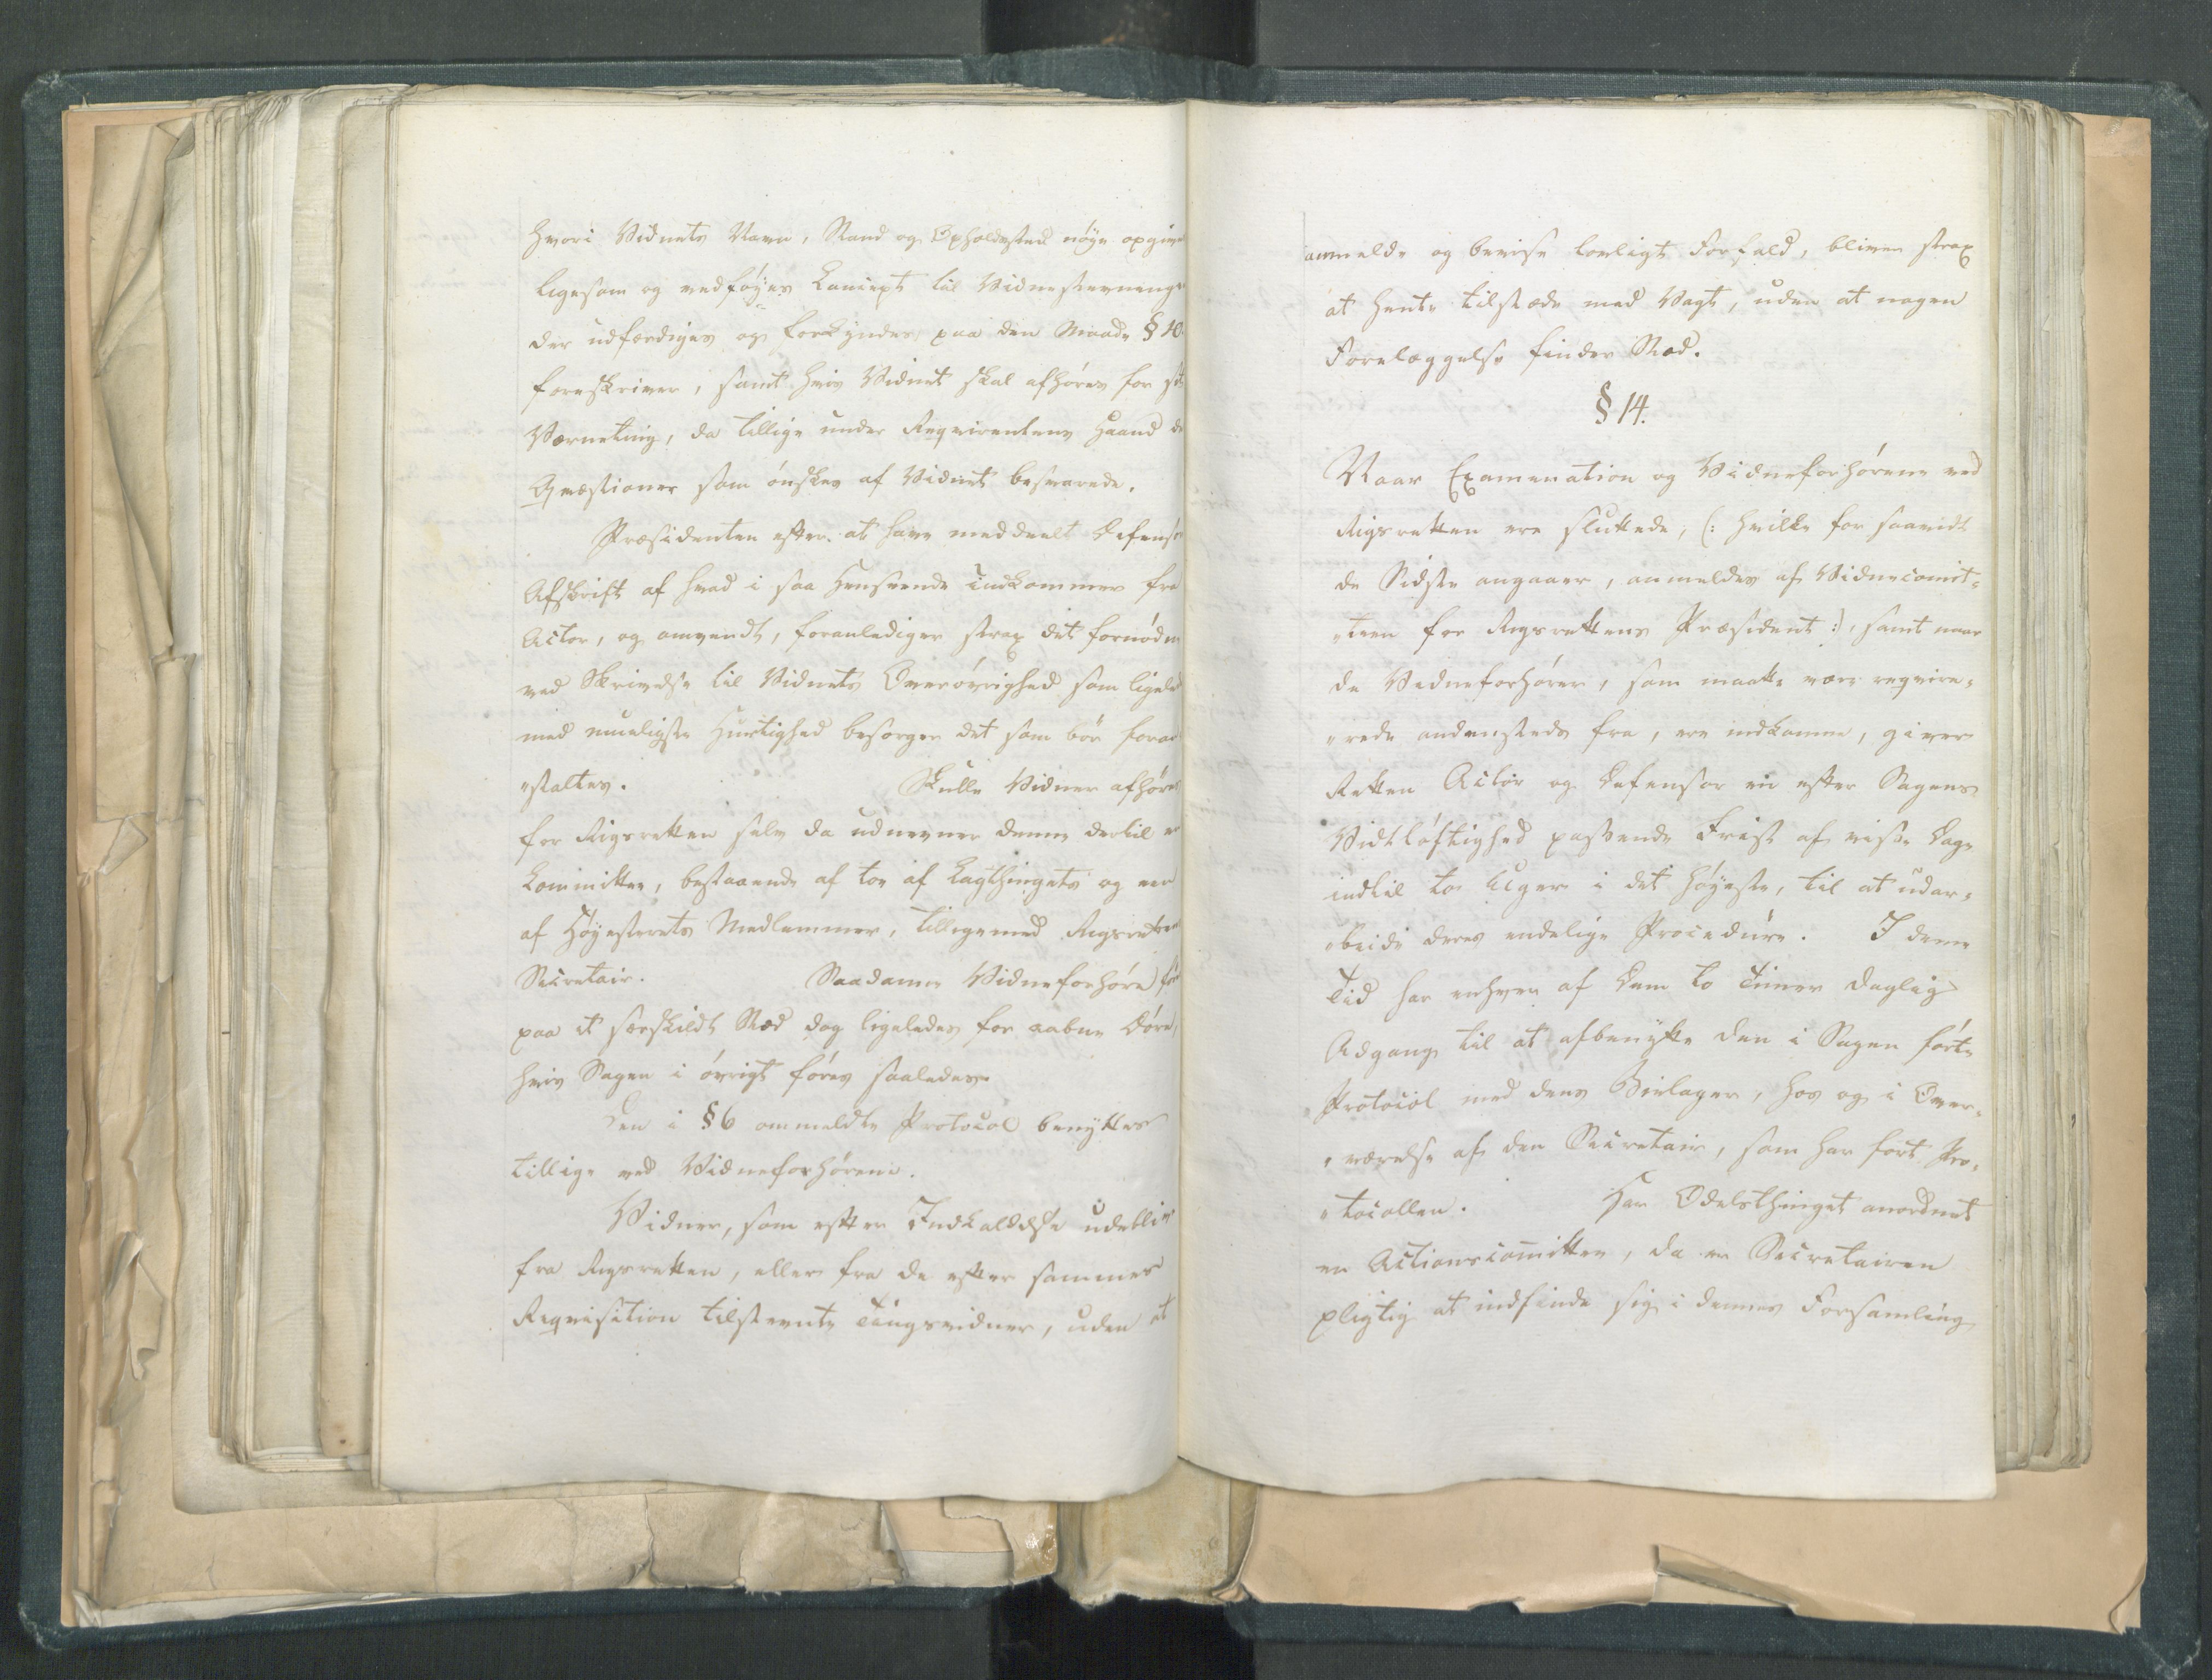 hvori Vidnets Navn, Stand og Opholdssted nøye opgive
ligesom og vedføyes Concept til Vidnestevninge
der udfærdiges og forkyndes paa den Maade § 10
foreskriver, samt hvis Vidnet skal afhøres for sit
Værneting, da tillige under Reqvirentens Haand de
Qvæstioner som ønskes af Vidnet besvarede.
Præsidenten efter at have meddeelt Defensor
Afskrift af hvad i saa Henseende indkommer fra
Actor, og omvendt, foranlediger strax det fornødne
ved Skrivelse til Vidnets Overøvrighed som ligeled
med mueligste Hurtighed besørger det som bør foran
"staltes. Skulle Vidner afhøres
for Rigsretten selv da udnevner denne dertil en
Committee, bestaaende af toe af Lagthingets og een
af Høyesterets Medlemmer, tilligemed Rigsrettens
Secretair. Saadanne Vidneforhøre
paa et særskildt Stæd dog ligeledes for aabne Døre,
hvis Sagen i øvrigt føres saaledes.
Den i § 6 ommeldte Protocol benyttes
tillige ved Vidneforhørene.
Vidner, som efter Indkaldelse udebliv
fra Rigsretten, eller fra de efter sammes
Reqvisition tilstevnte Tingsvidner, uden at
anmelde og bevise lovligt Forfald, bliver strax
at hente tilstæde med Vagt, uden at nogen
Forelæggelse finder Stæd.
§ 14.
Naar Examination og Vidneforhørene ved
Rigsretten ere sluttede, (: hvilke for saavidt
de Sidste angaaer, anmeldes af Vidnecomit=
"teen for Rigsrettens Præsident :), samt naar
de Vidneforhører, som maatte være reqvire=
"rede andensteds fra, ere indkomne, giver
Retten Actor og Defensor en efter Sagens
Vidtløftighed passende Frist af visse Dage
indtil to Uger i det høyeste, til at udar=
"beide deres endelige Procedure. I denne
Tid har enhver af Dem to Timer daglig
Adgang til at afbenytte den i Sagen førte
Protocol med dens Bielager, hos og i Over=
"værelse af den Secretair, som har ført Pro=
"tocollen. Har Odelsthinget anordnet
en Actionscomittee, da er Secretairen
pligtig at indfinde sig i dennes Forsamling